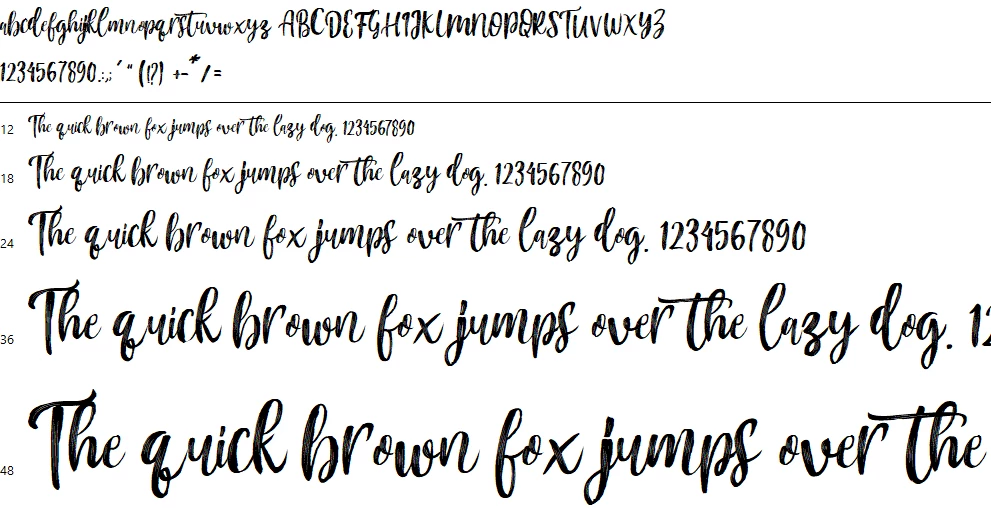 abcdefghijklmnopqrstuvwxyz ABCDEFGHIJKLMNOPQRSTUVWXYZ
1234567890.:,; ' " (!?) +-*/=
12 The quick brown fox jumps over the lazy dog. 1234567890
18 The quick brown fox jumps over the lazy dog. 1234567890
24 The quick brown fox jumps over the lazy dog. 1234567890
36 The quick brown fox jumps over the lazy dog. 12
48 The quick brown fox jumps over the